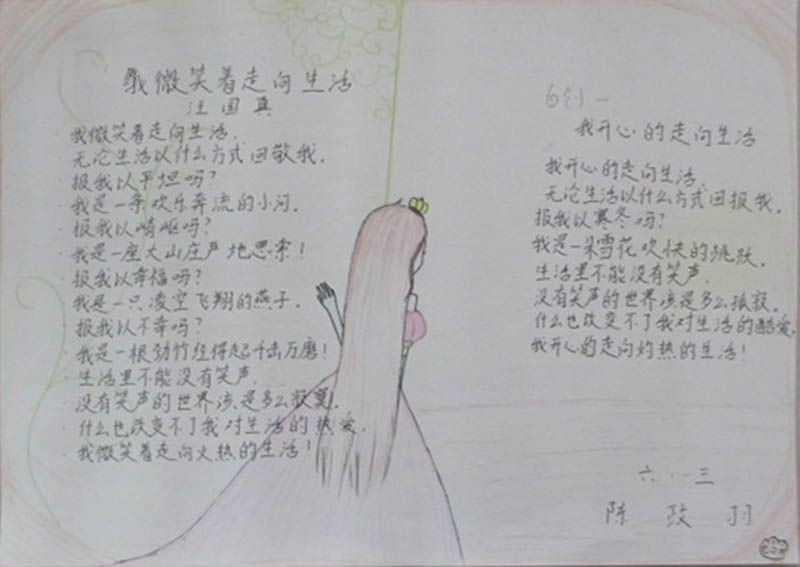 我微笑着走向生活
汪国真
我微笑着走向生活,
无论生活以什么方式回敬我。
报我以平坦吗?
我是一条欢乐奔流的小河。
报我以崎岖吗?
我是一座大山庄严地思索!
报我以幸福吗?
我是一只凌空飞翔的燕子。
报我以不幸吗?
我是一根劲竹经得起千击万磨!
生活里不能没有笑声,
没有笑声的世界该是多么寂寞。
什么也改变不了我对生活的热爱,
我微笑着走向火热的生活!
我开心的走向生活
我开心的走向生活,
无论生活以什么方式回报我。
报我以寒冬吗?
我是一朵雪花欢快的跳跃。
生活里不能没有笑声,
没有笑声的世界该是多么孤寂。
什么也改变不了我对生活的酷爱,
我开心的走向灼热的生活!
六.一三
陈政羽